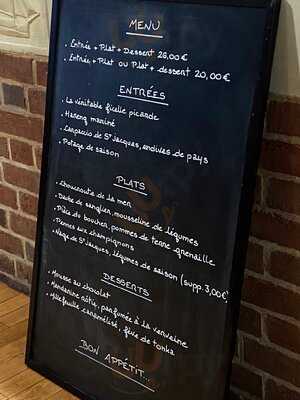 MENU
. Entrée + Plat + Dessert 26,00€
. Entrée + Plat ou Plat + dessert 20,00€
ENTRÉES
. La véritable ficelle picarde
. Hareng mariné
. Carpaccio de St Jacques, endives de pays
. Potage de saison
PLATS
. Choucroute de la mer
. Daube de sanglier, mousseline de légumes
. Pièce du boucher, pommes de terre grenaille
. Pennes aux champignons
. Nage de St Jacques, légumes de saison (supp. 3,00€)
DESSERTS
. Mousse au chocolat
. Mandarine rôtie, parfumée à la verveine
. Millefeuille caramélisé, fève de tonka
BON APPÉTIT...